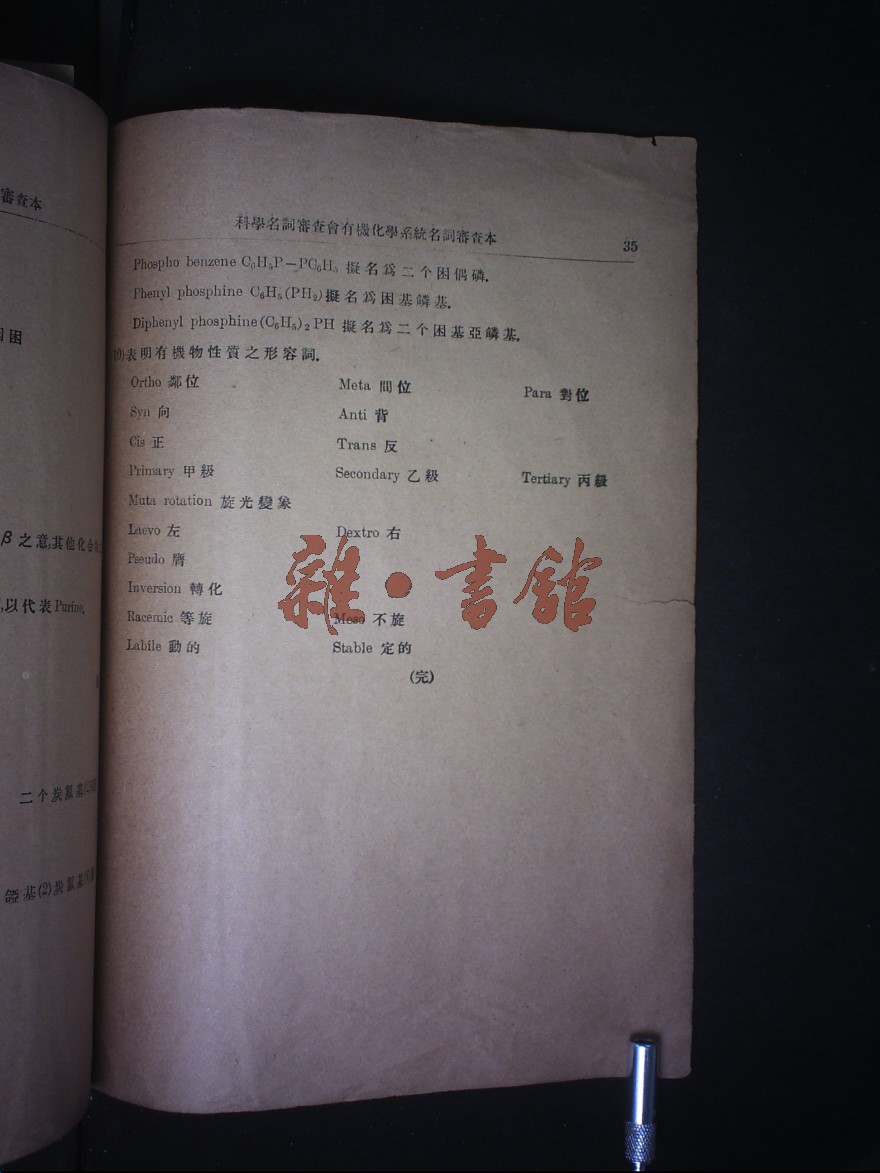 審查本
科學名詞審查會有機化學系統名詞審查本 35
Phospho benzene C₆H₅P—PC₆H₅ 擬名爲二个困偶磷.
Phenyl phosphine C₆H₅(PH₂)擬名爲困基鏻基.
Diphenyl phosphine(C₆H₅)₂PH 擬名爲二个困基亞鏻基.
10)表明有機物性質之形容詞.
Ortho 鄰位 Meta 間位 Para 對位
Syn 向 Anti 背
Cis 正 Trans 反
Primary 甲級 Secondary 乙級 Tertiary 丙級
Muta rotation 旋光變象
Laevo 左 Dextro 右
Pseudo 贋
Inversion 轉化
Racemic 等旋 Meso 不旋
Labile 動的 Stable 定的
(完)
困
β 之意,其他化合
,以代表Purine.
二个炭氮基
基(2)炭氮基
雜·書館